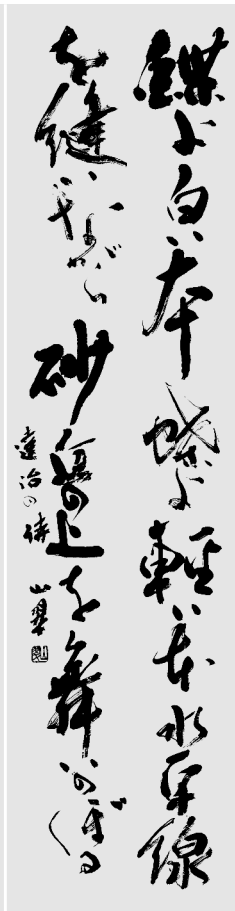 蝶よ白い本蝶よ軽い本水平線
を縫いながら砂丘の上を舞いのぼる
達治の詩